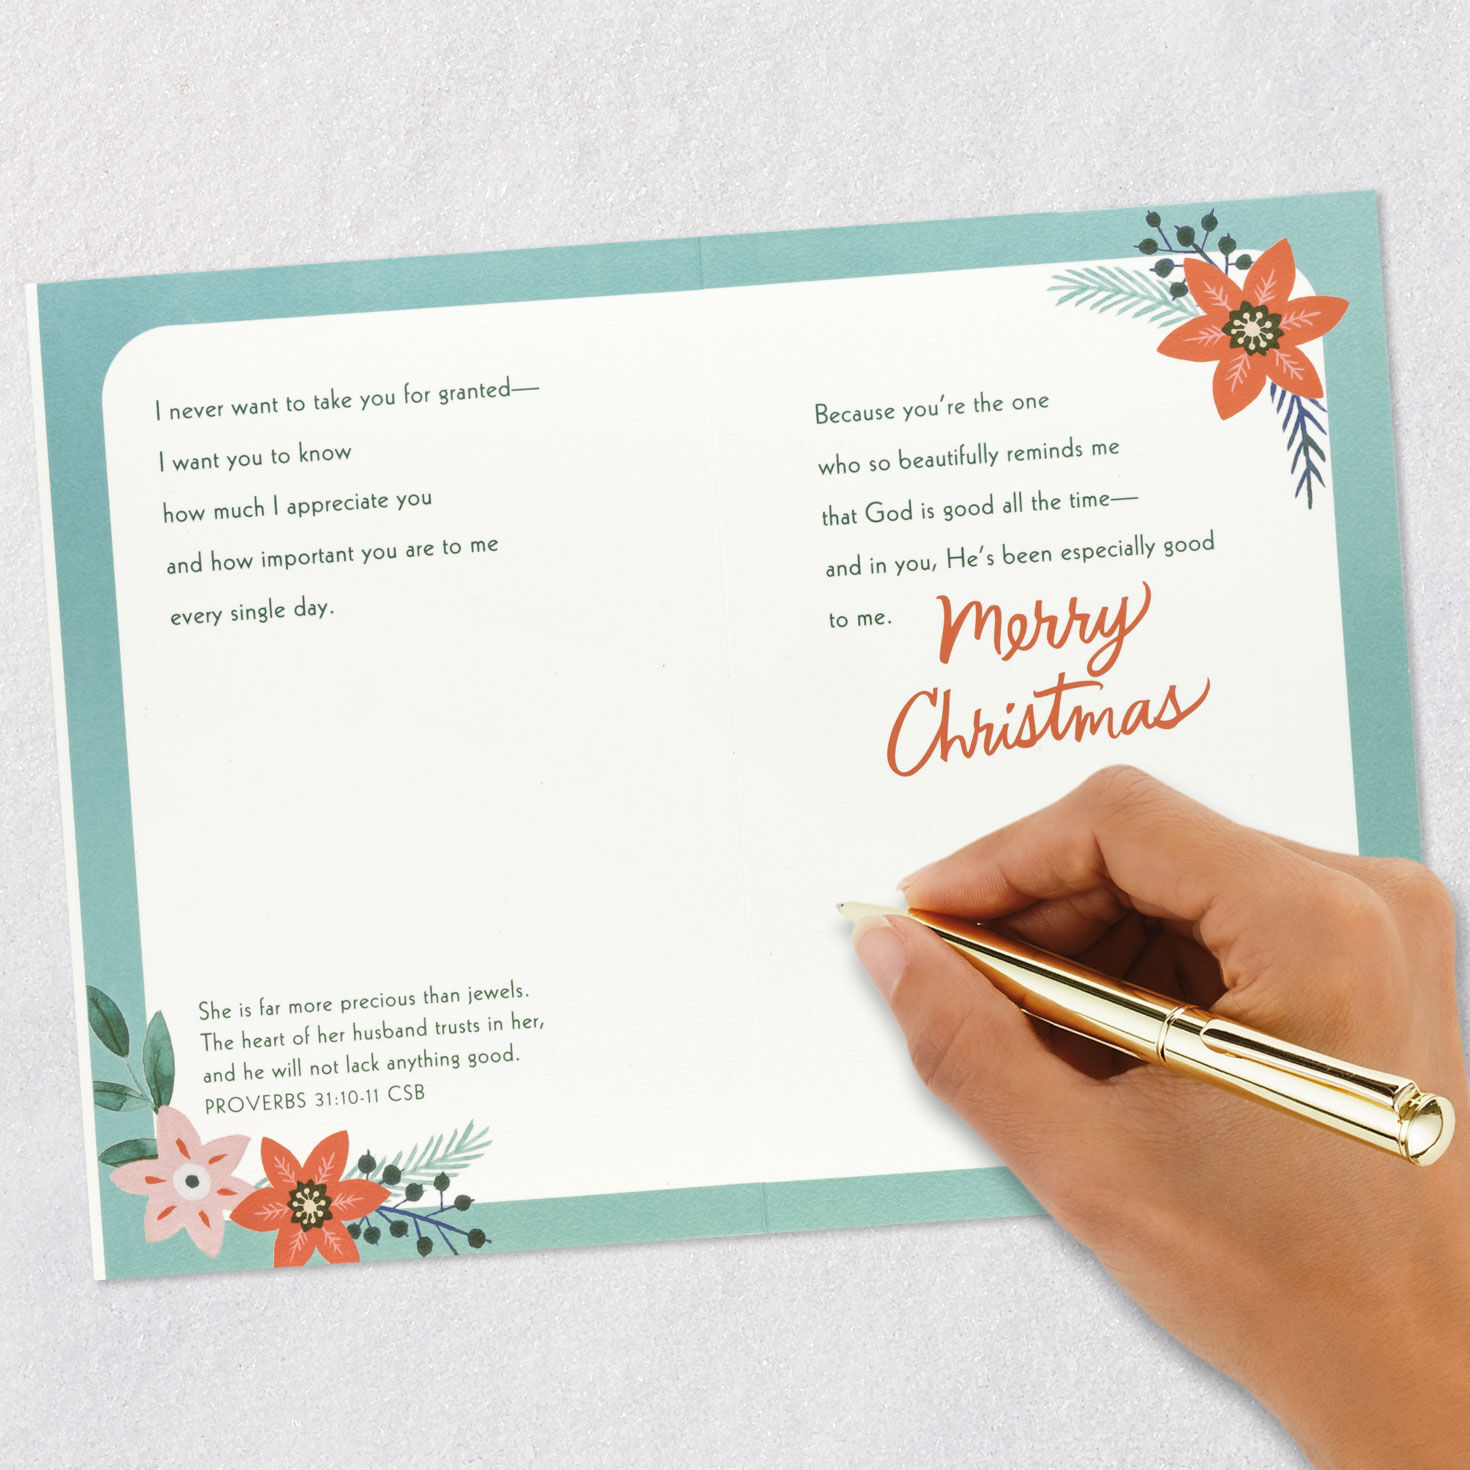 I never want to take you for granted—
I want you to know
how much I appreciate you
and how important you are to me
every single day.
She is far more precious than jewels.
The heart of her husband trusts in her,
and he will not lack anything good.
PROVERBS 31:10-11 CSB
Because you're the one
who so beautifully reminds me
that God is good all the time—
and in you, He's been especially good
to me.
Merry
Christmas